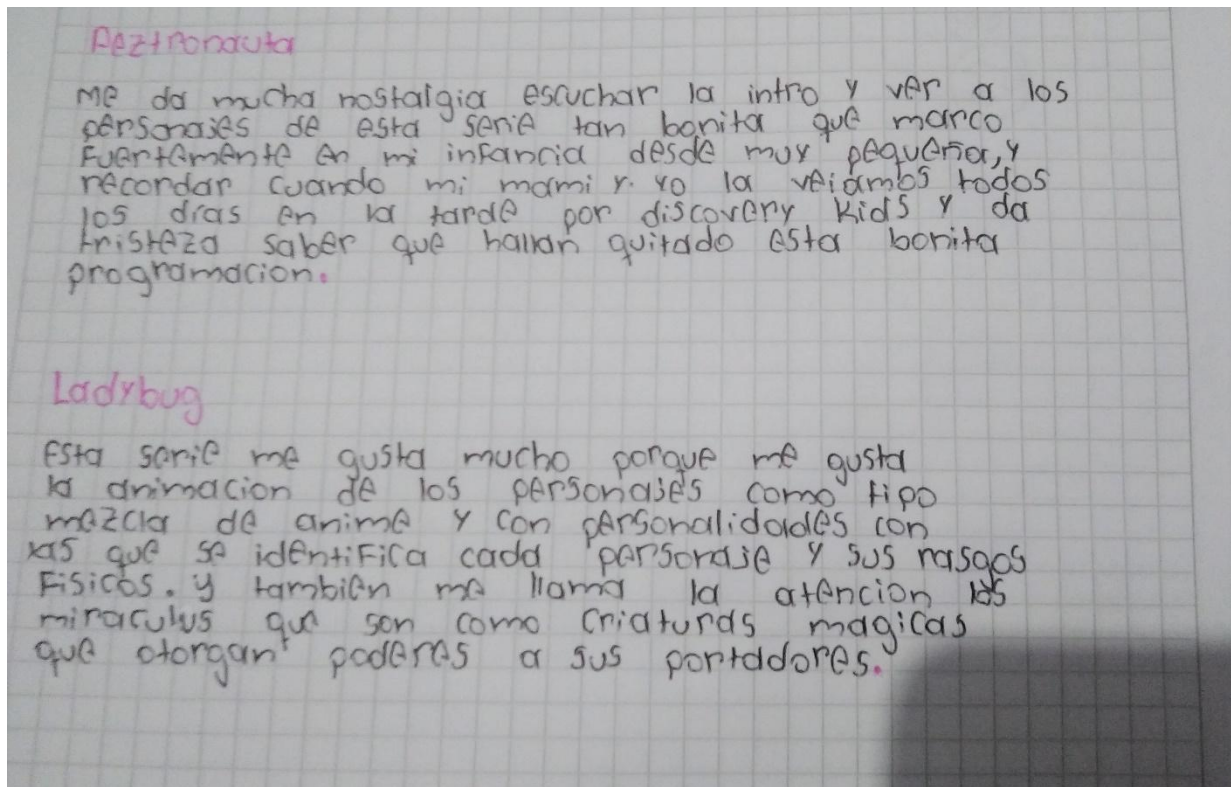 Peztronauta
Me da mucha nostalgia escuchar la intro y ver a los
personajes de esta serie tan bonita que marco
Fuertemente en mi infancia desde muy pequeña, y
recordar cuando mi mami y. yo la veiamos todos
los dias en la tarde por discovery kids y da
tristeza saber que hallan quitado esta bonita
programacion.
Ladybug
Esta serie me gusta mucho porque me gusta
la animacion de los personajes como tipo
mezcla de anime y con personalidades con
las que se identifica cada personaje y sus rasgos
Fisicos. y tambien me llama la atencion los
miraculus que son como criaturas magicas
que otorgan poderes a sus portadores.